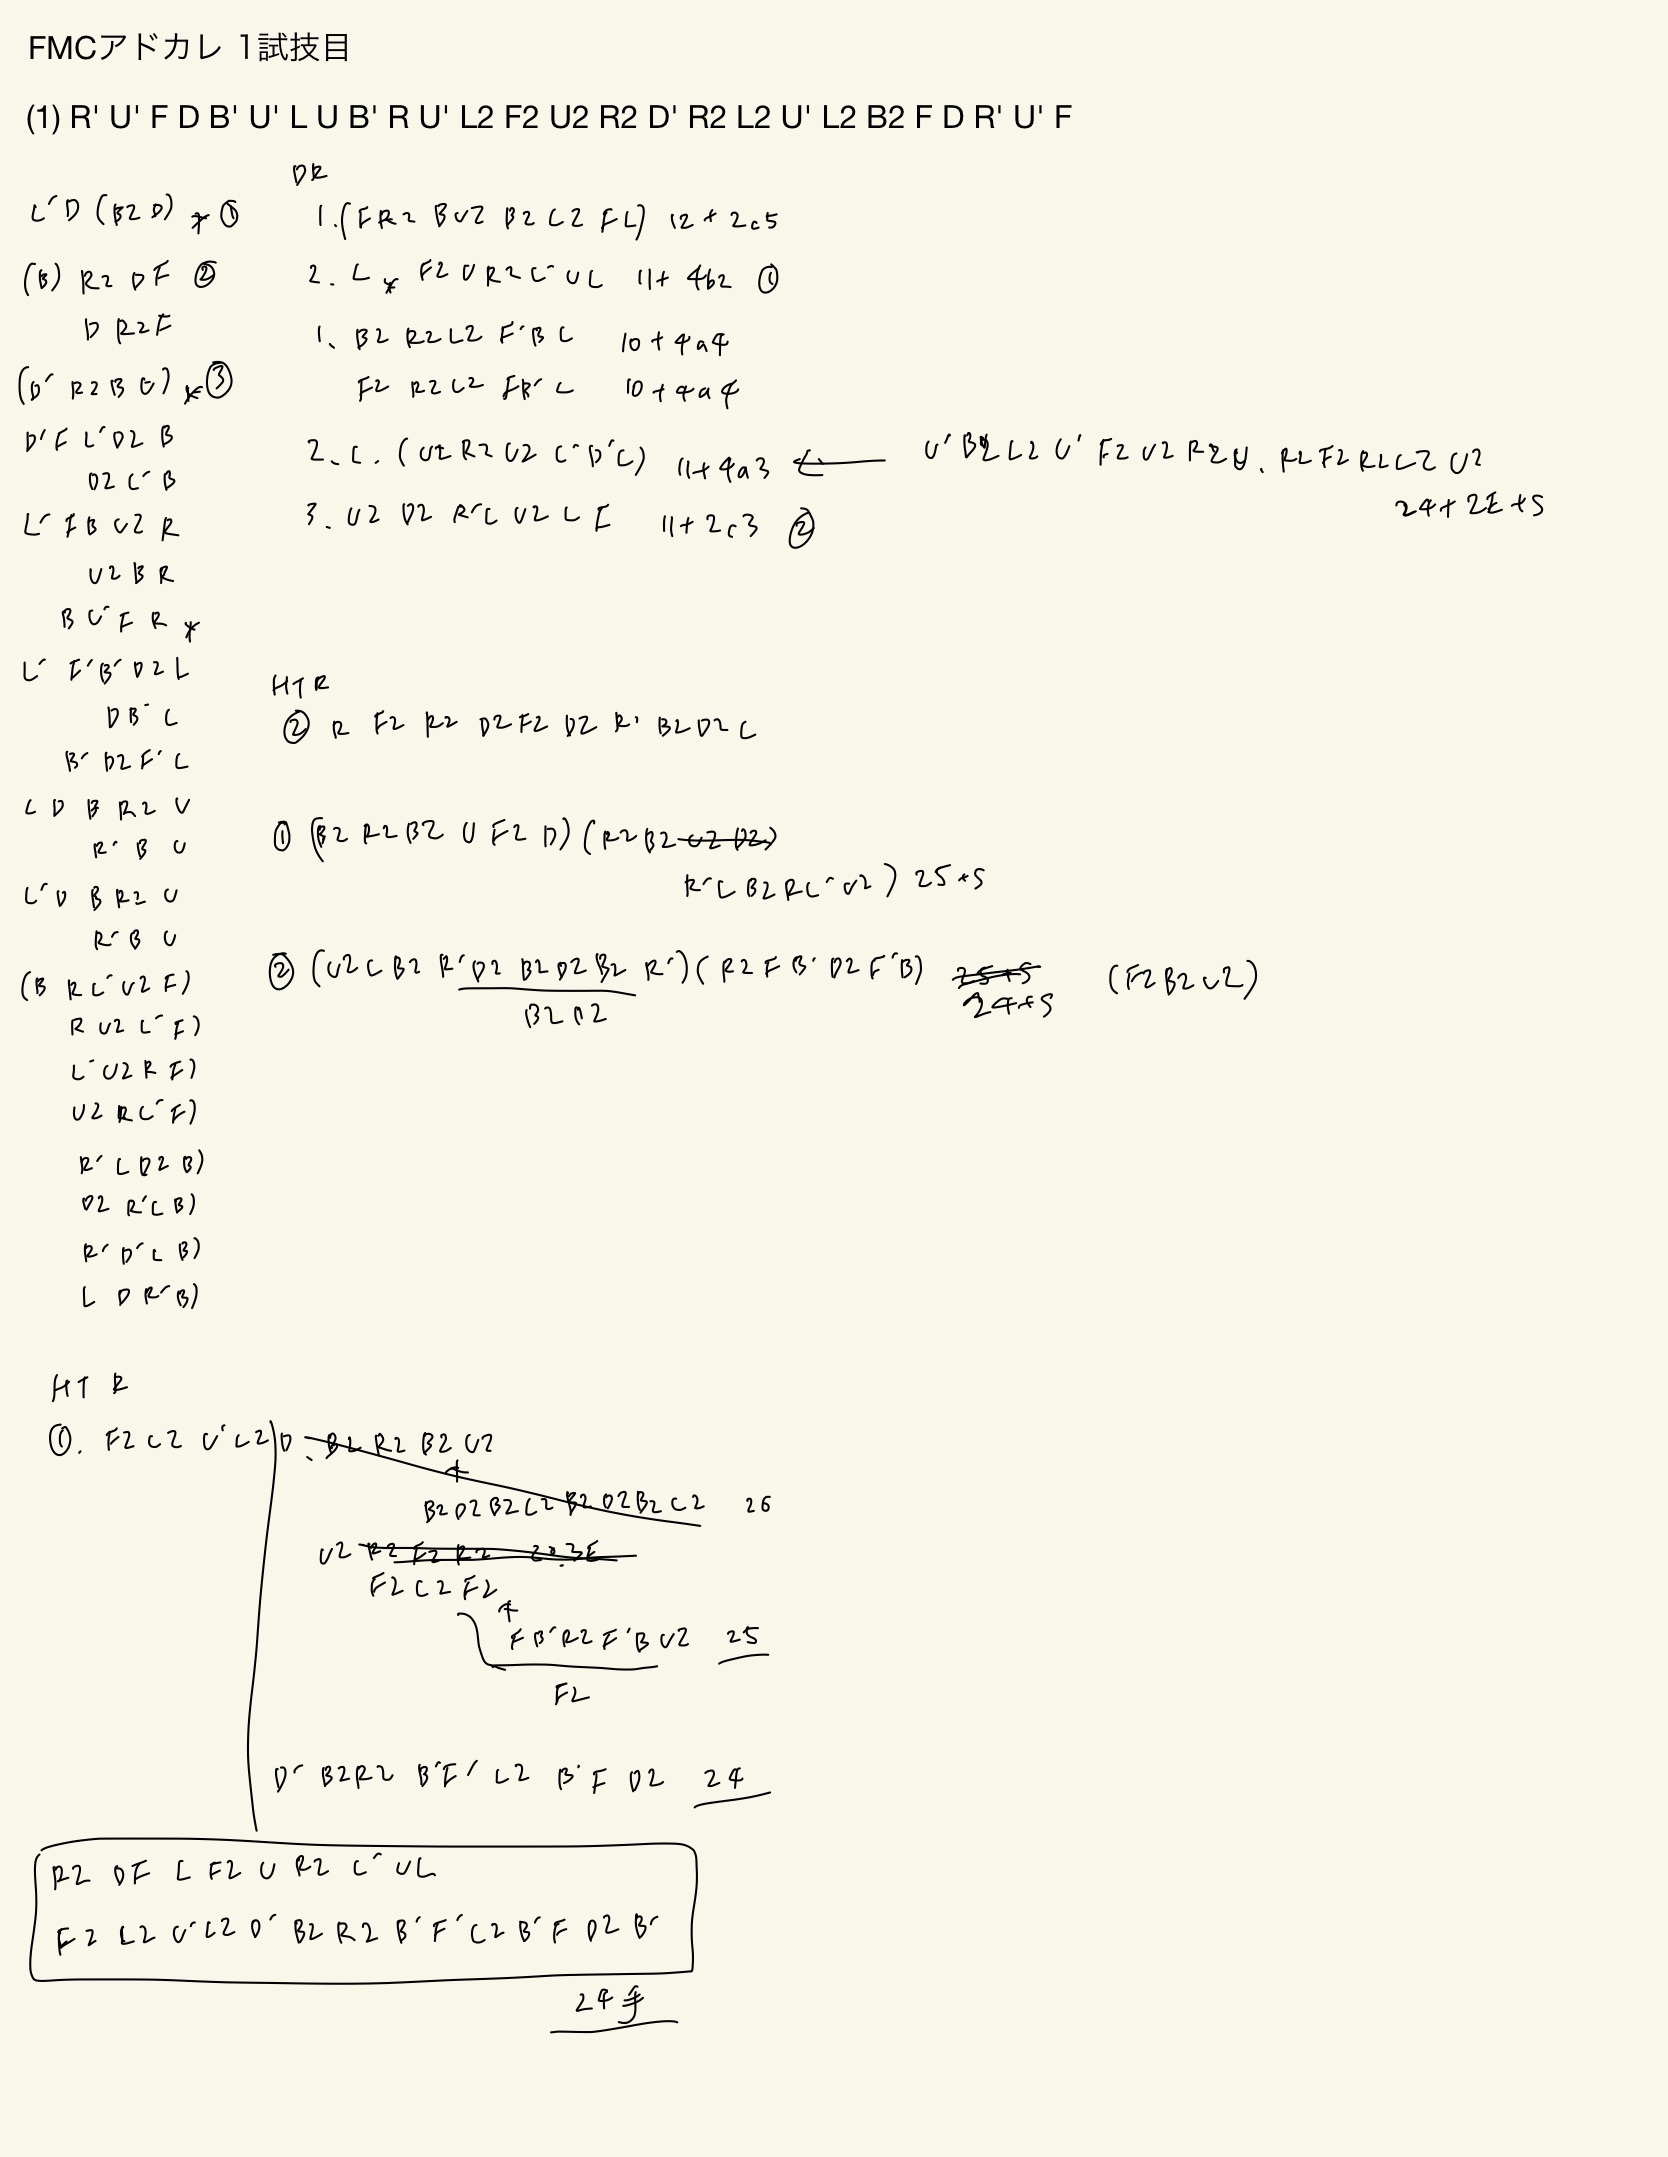 FMCアドカレ 1試技目
(1) R' U' F D B' U' L U B' R U' L2 F2 U2 R2 D' R2 L2 U' L2 B2 F D R' U' F
L' D (B2 D) * ①
(B) R2 D F ②
D R2 F
(D' R2 B U) * ③
D' F L' D2 B
D2 L' B
L' F B U2 R
U2 B R
B U' F R *
L' F' B' D2 L
D B' L
B' D2 F' L
L D B R2 U
R' B U
L' D B R2 U
R' B U
(B R L' U2 F)
R U2 L' F)
L' U2 R F)
U2 R L' F)
R' L D2 B)
D2 R' L B)
R' D' L B)
L D R' B)
DR
1. (F R2 B U2 B2 L2 F L) 12 + 2c5
2. L * F2 U R2 L' U L 11 + 4b2 ①
1. B2 R2 L2 F' B L 10 + 4a4
F2 R2 L2 F B' L 10 + 4a4
2. L. (U2 R2 U2 L' D' L) 11 + 4a3 ← U' B2 L2 U' F2 U2 R2 U. R2 F2 R2 L2 U2
24 + 2E + S
3. U2 D2 R' L U2 L F 11 + 2c3 ②
HTR
② R F2 R2 D2 F2 D2 R' B2 D2 L
① (B2 R2 B2 U F2 D) (R2 B2 U2 D2)
R' L B2 R L' U2) 25+S
② (U2 L B2 R' D2 B2 D2 B2 R') (R2 F B' D2 F' B) 25+S (F2 B2 U2)
B2 D2
24+S
HTR
①. F2 L2 U' L2 D. B2 R2 B2 U2
B2 D2 B2 L2 B2 D2 B2 L2 26
U2 R2 F2 R2 20.3E
F2 L2 F2
F B' R2 F' B U2 25
F2
D' B2 R2 B' F' L2 B' F D2 24
R2 D F L F2 U R2 L' U L
F2 L2 U' L2 D' B2 R2 B' F' L2 B' F D2 B'
24手